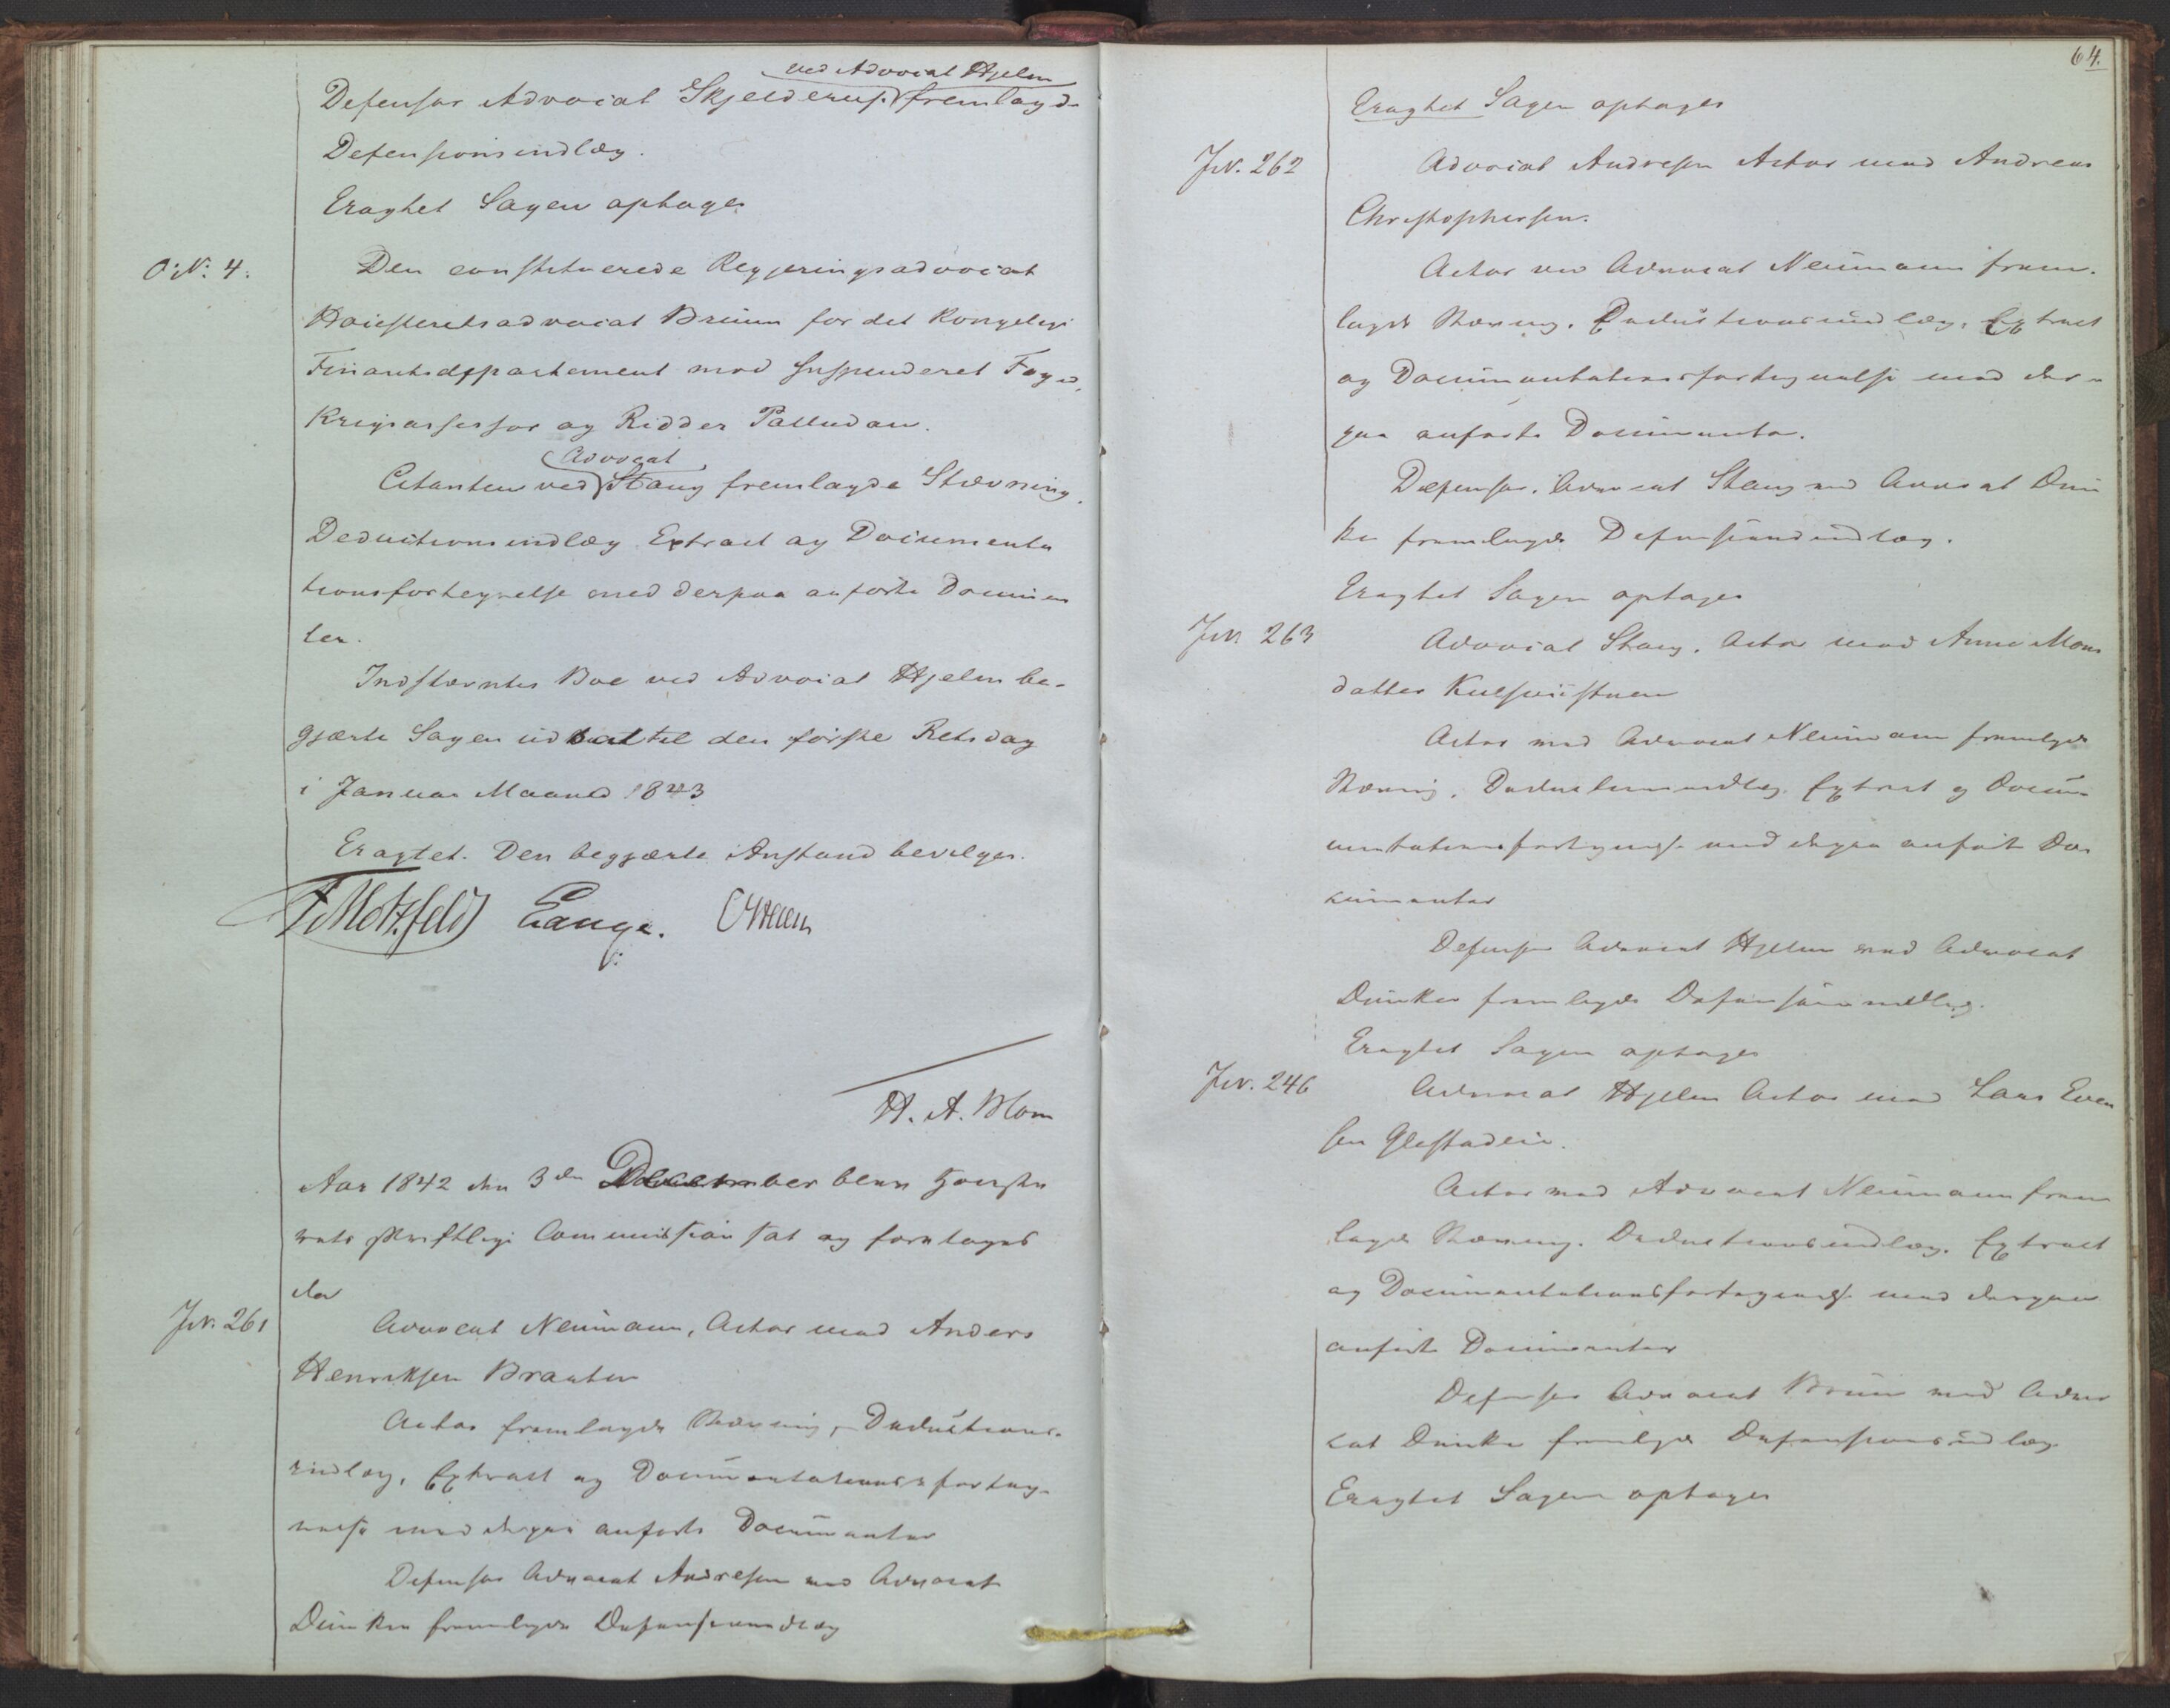 ved Advocat Hjelm
Defensor Advocat Skjelderup fremlagde
Defensionsindlæg.
Eragtet Sagen optages
O: N: 4.
Den constituerede Regjeringsadvocat
Høiesteretsadvocat Bruun for det Kongelige
Finantsdeppartement mod suspenderet Foged,
Krigsassessor og Ridder Palludan.
Advocat
Citanten ved Stang fremlagde Stævning,
Deductionsindlæg Extract og Documenta
tionsfortegnelse med derpaa anførte Documen
ter.
Indstævntes Boe ved Advocat Hjelm be-
gjærte Sagen udsat til den første Retsdag
i Januar Maaned 1843
Eragtet. Den begjærte Anstand bevilges.
Motzfeldt Lange.
H. A. Blom
Aar 1842 den 3den December blev Høieste
rets skriftlige Commission sat og foretoges
da
Jv. 261
Advocat Neumann, Actor mod Anders
Henriksen Braaten
Actor fremlagde Stævning, Deductions-
indlæg, Extract og Documentationsforteg-
nelse med derpaa anførte Documenter
Defensor Advocat Andresen ved Advocat
Dunker fremlagde Defensionsindlæg
64.
Eragtet Sagen optages
Jv. 262
Advocat Andresen Actor mod Andreas
Christophersen.
Actor ved Advocat Neumann frem-
lagde Stævning, Deductionsindlæg, Extract
og Documentationsfortegnelse med der-
paa anførte Documenter.
Defensor, Advocat Stang ved Advocat Dun
ker fremlagde Defensionsindlæg.
Eragtet Sagen optages
Jv. 263
Advocat Stang, Actor mod Anne Mons
datter
Actor ved Advocat Neumann fremlagde
Stævning, Deductionsindlæg, Extract og Docu-
mentationsfortegnelse med derpaa anførte Do-
cumenter
Defensor Advocat Hjelm ved Advocat
Dunker fremlagde Defensionsindlæg.
Eragtet Sagen optages
Jv. 246
Advocat Hjelm Actor mod Lars Even
sen
Actor ved Advocat Neumann frem
lagde Stævning. Deductionsindlæg. Extract
og Documentationsfortegnelse med derpaa
anførte Documenter
Defensor Advocat Bruun ved Advo
cat Dunker fremlagde Defensionsindlæg
Eragtet Sagen optages